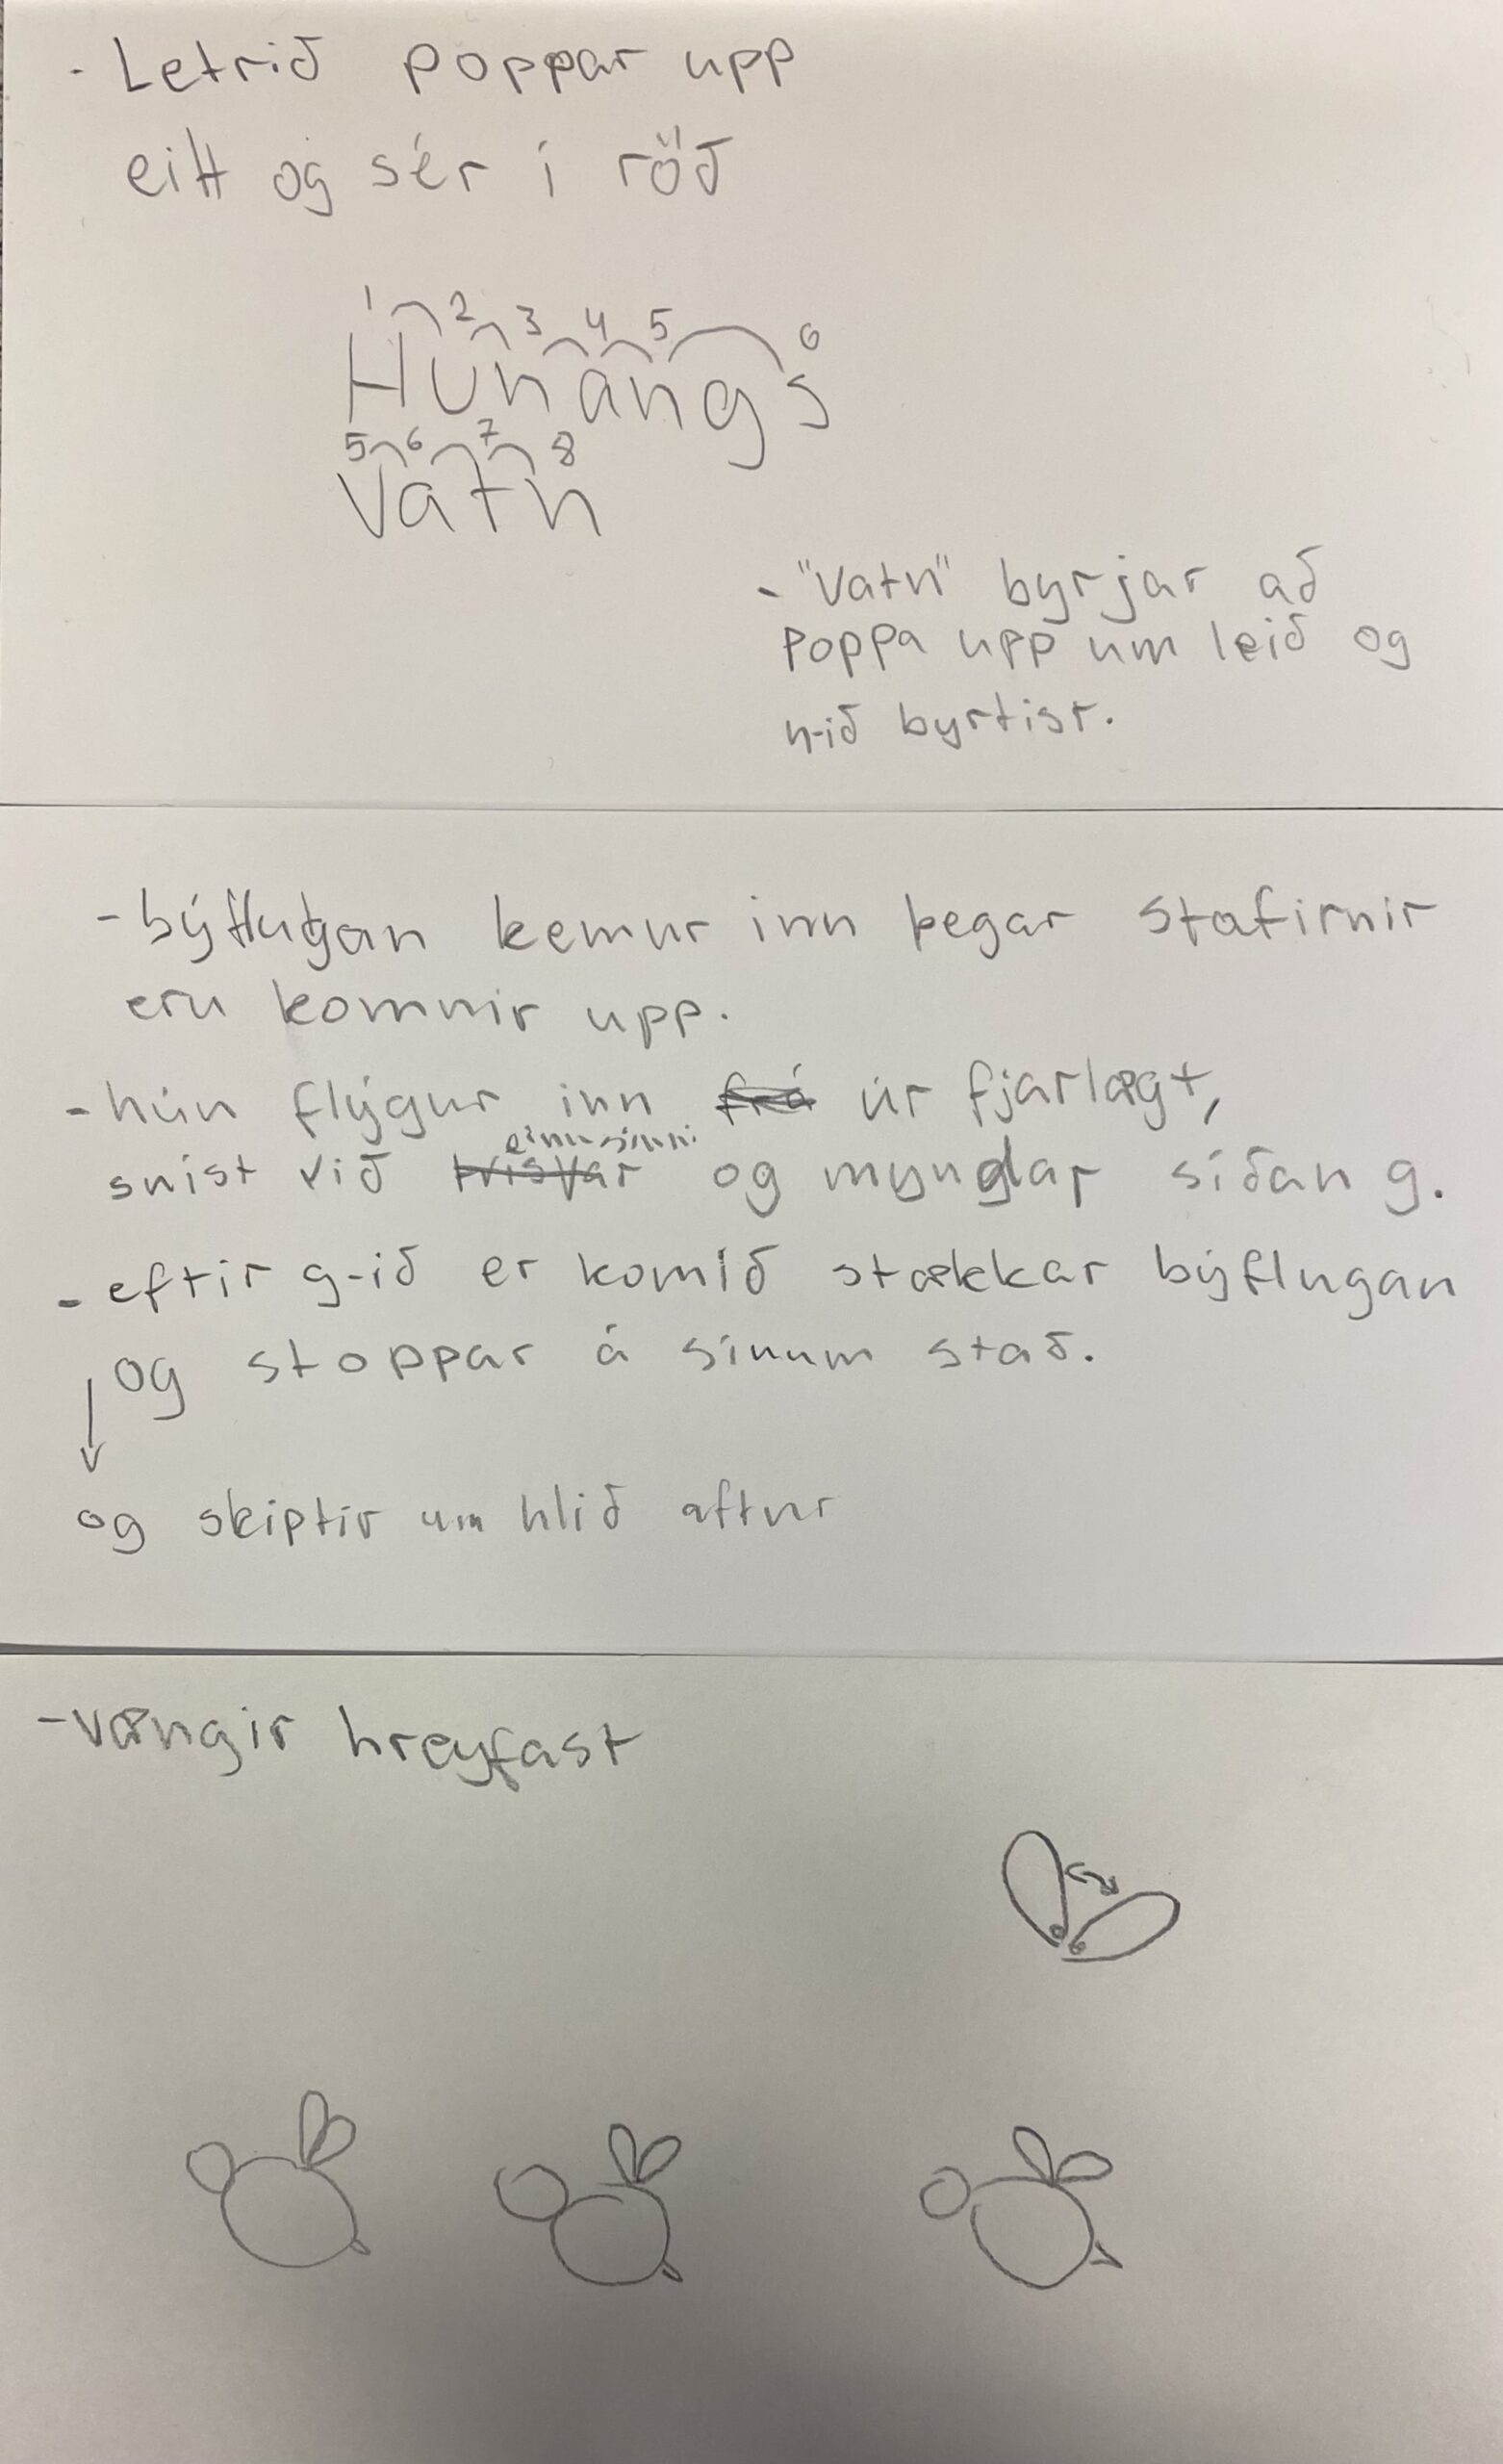 - Letrið poppar upp
eitt og sér í röð
1 2 3 4 5 6
Hunangs
5 6 7 8
Vatn
- "Vatn" byrjar að
poppa upp um leið og
n-ið byrtist.
- býflugan kemur inn þegar stafirnir
eru komnir upp.
- hún flýgur inn frá úr fjarlægt,
einu sinni
sníst við tvisvar og myndar síðan g.
- eftir g-ið er komið stækkar býflugan
og stoppar á sínum stað.
og skiptir um hlið aftur
- vængir hreyfast